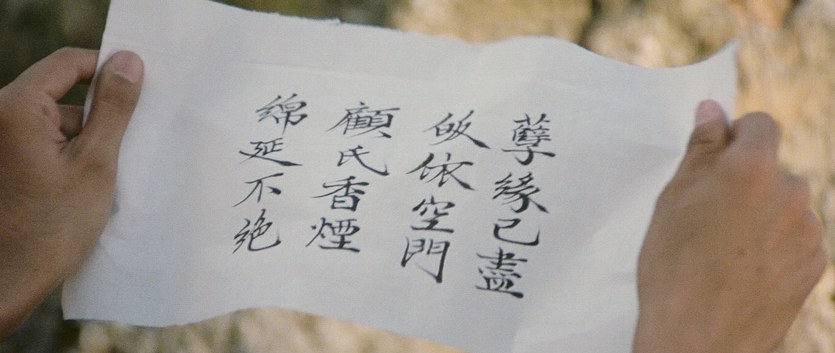 孽緣已盡
皈依空門
顧氏香煙
綿延不絕